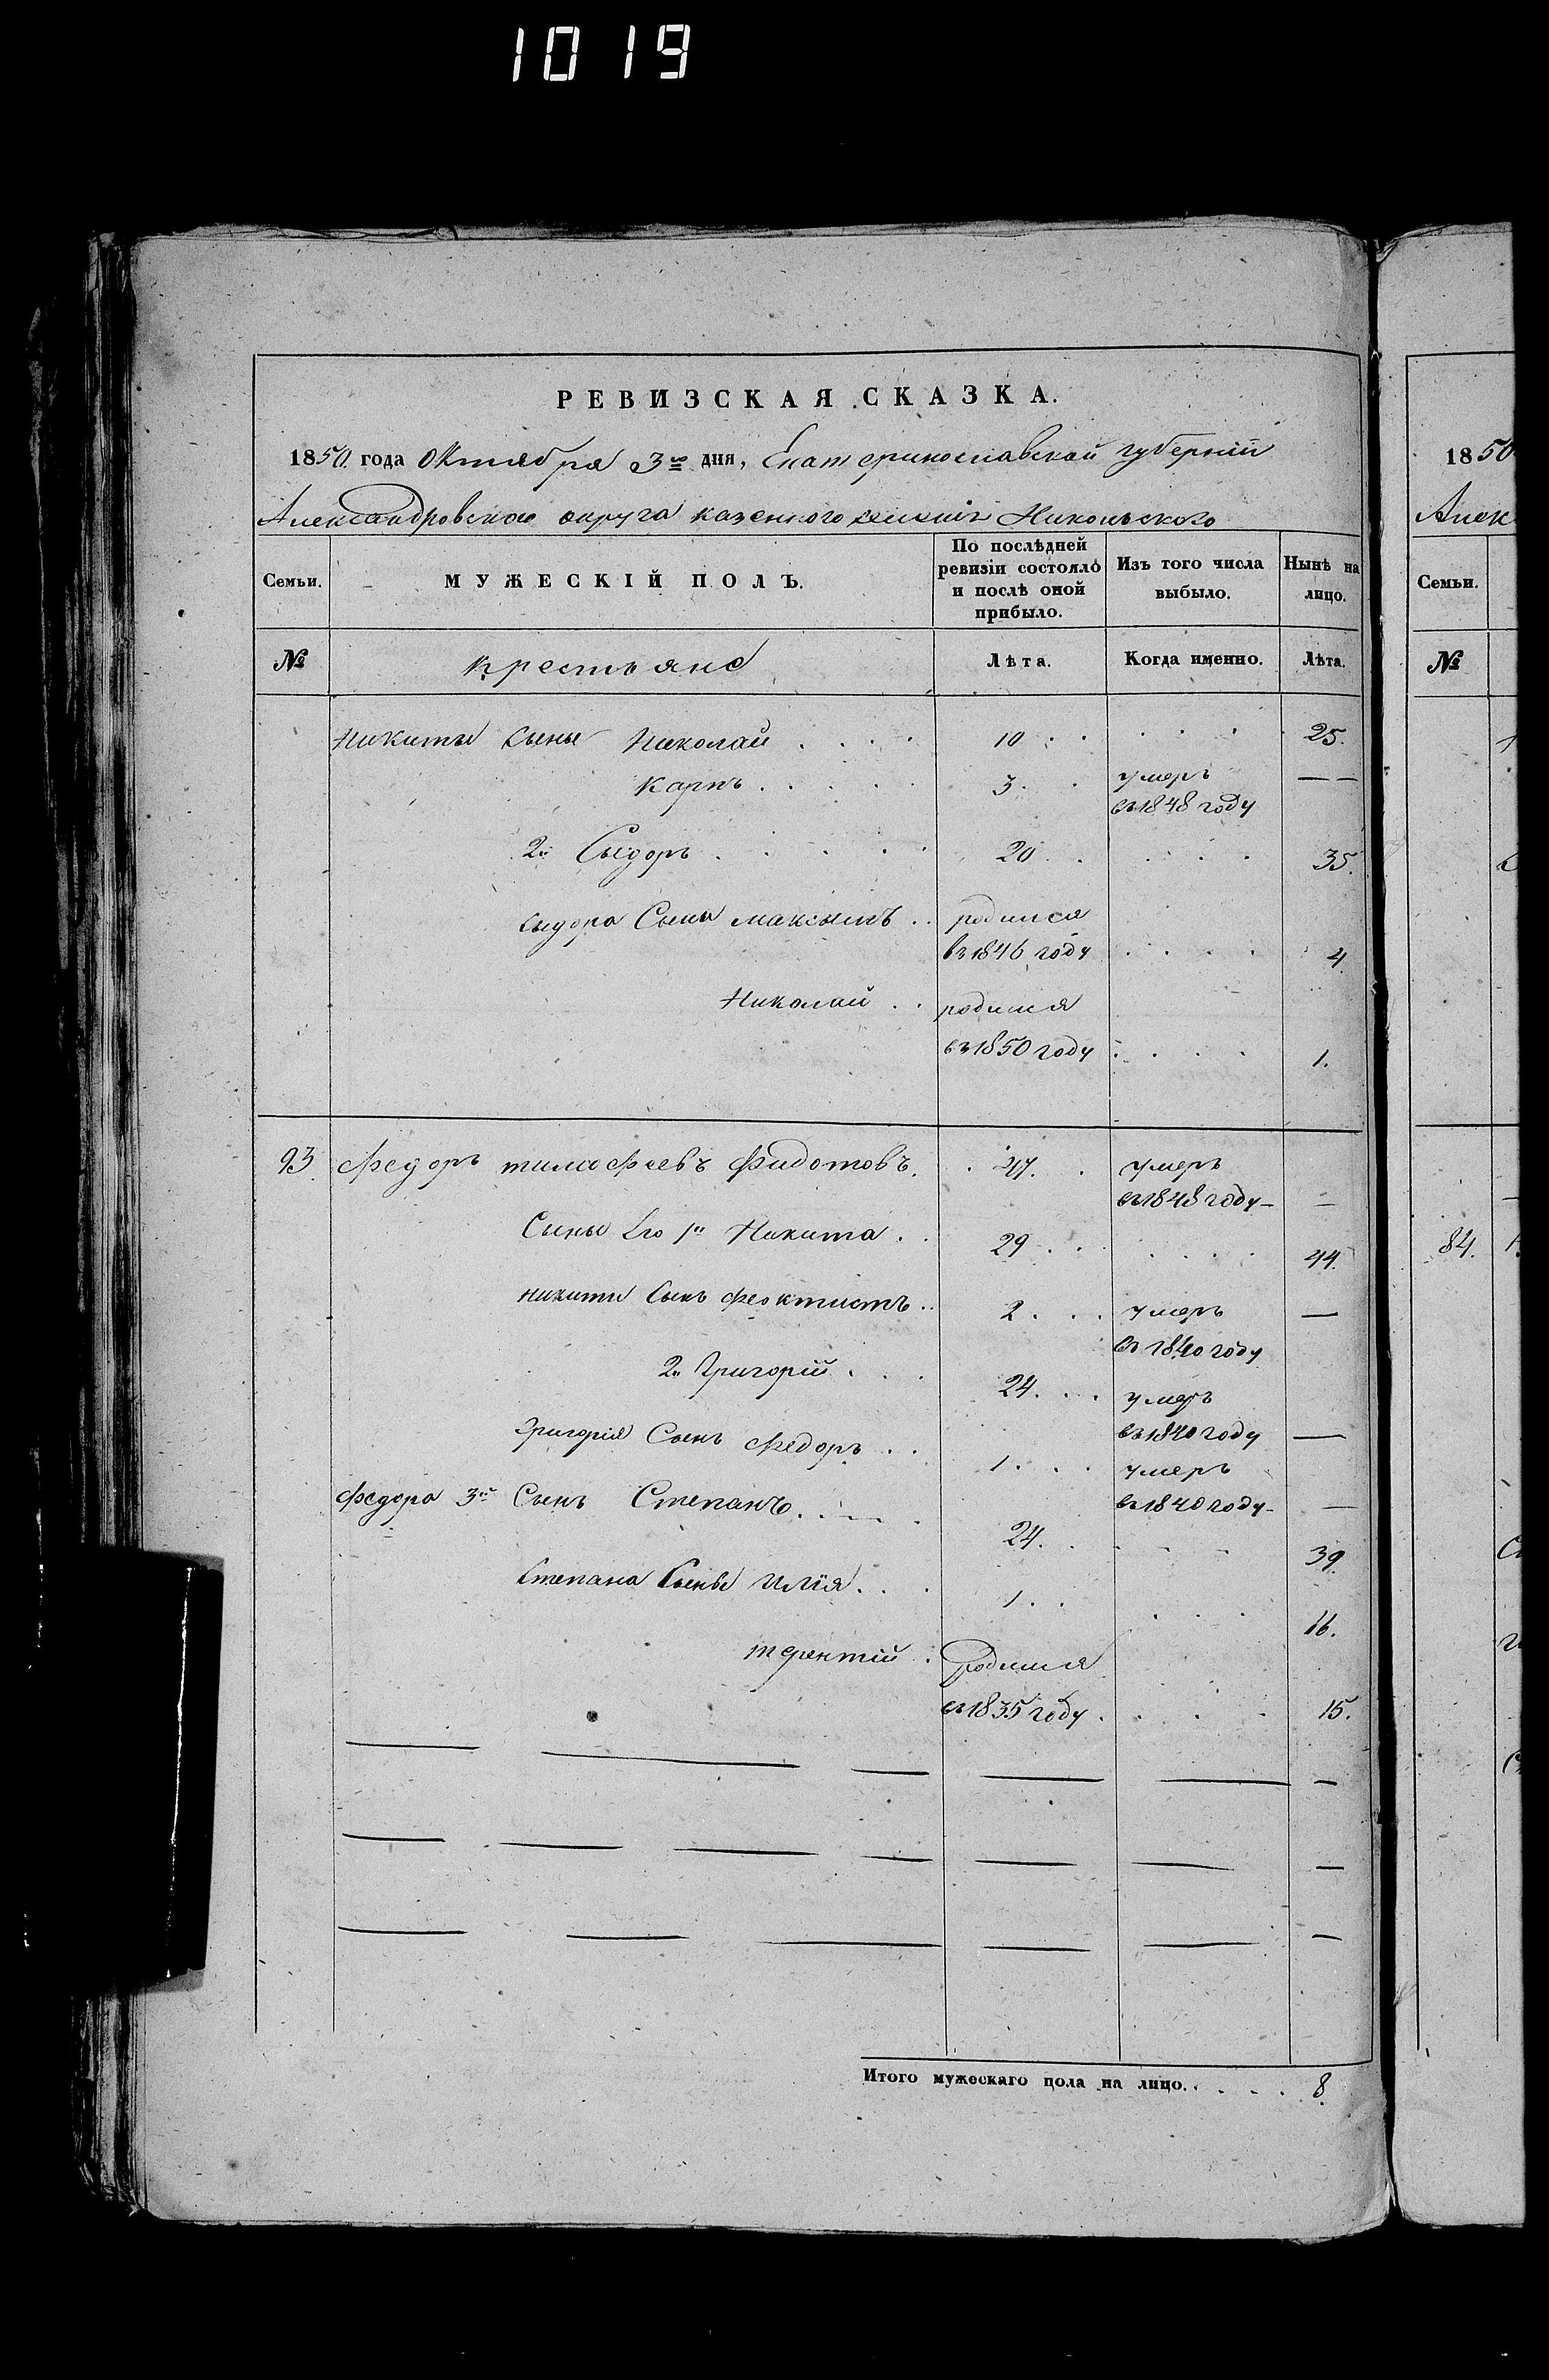 1019
РЕВИЗСКАЯ СКАЗКА.
1850 года Октября 3го дня, Екатеринославской губернiи
Александровскаго округа казенного селенiя Никольского
Семьи. МУЖЕСКIЙ ПОЛЪ. По послѣдней ревизiи состояло и послѣ оной прибыло. Изъ того числа выбыло. Нынѣ на лицо.
№ крестьяне Лѣта. Когда именно. Лѣта.
Никиты сыны Николай . . . . 10 . . . . . . 25.
Карпъ . . . . . 3 . . умеръ — —
въ 1848 году
2й Сыдоръ . . . . . 20 . . . . . . 35.
Сыдора Сыны максымъ . . родился
въ 1846 году . . . . 4
Николай . . родился
въ 1850 году . . . . 1.
93 Федоръ тимофеевъ Фидотовъ. . 47. . умеръ
въ 1848 году — —
Сыны Его 1й Никита . . 29 . . . . . . 44.
никиты Сынъ феоктистъ . . 2 . . . умеръ —
въ 1840 году
2й Григорiй . . . 24. . . умеръ
въ 1840 году —
Григорiя Сынъ Федоръ . . 1 . . . умеръ
въ 1840 году — —
Федора 3й Сынъ Степанъ . . . . 24. . . . . 39.
Степана Сыны Илiя . . . 1 . . . . . 16.
терентiй . родился
въ 1835 году . . . . 15.
Итого мужескаго пола на лицо. . . . . 8.
1850
Алек
Семьи.
№
84.